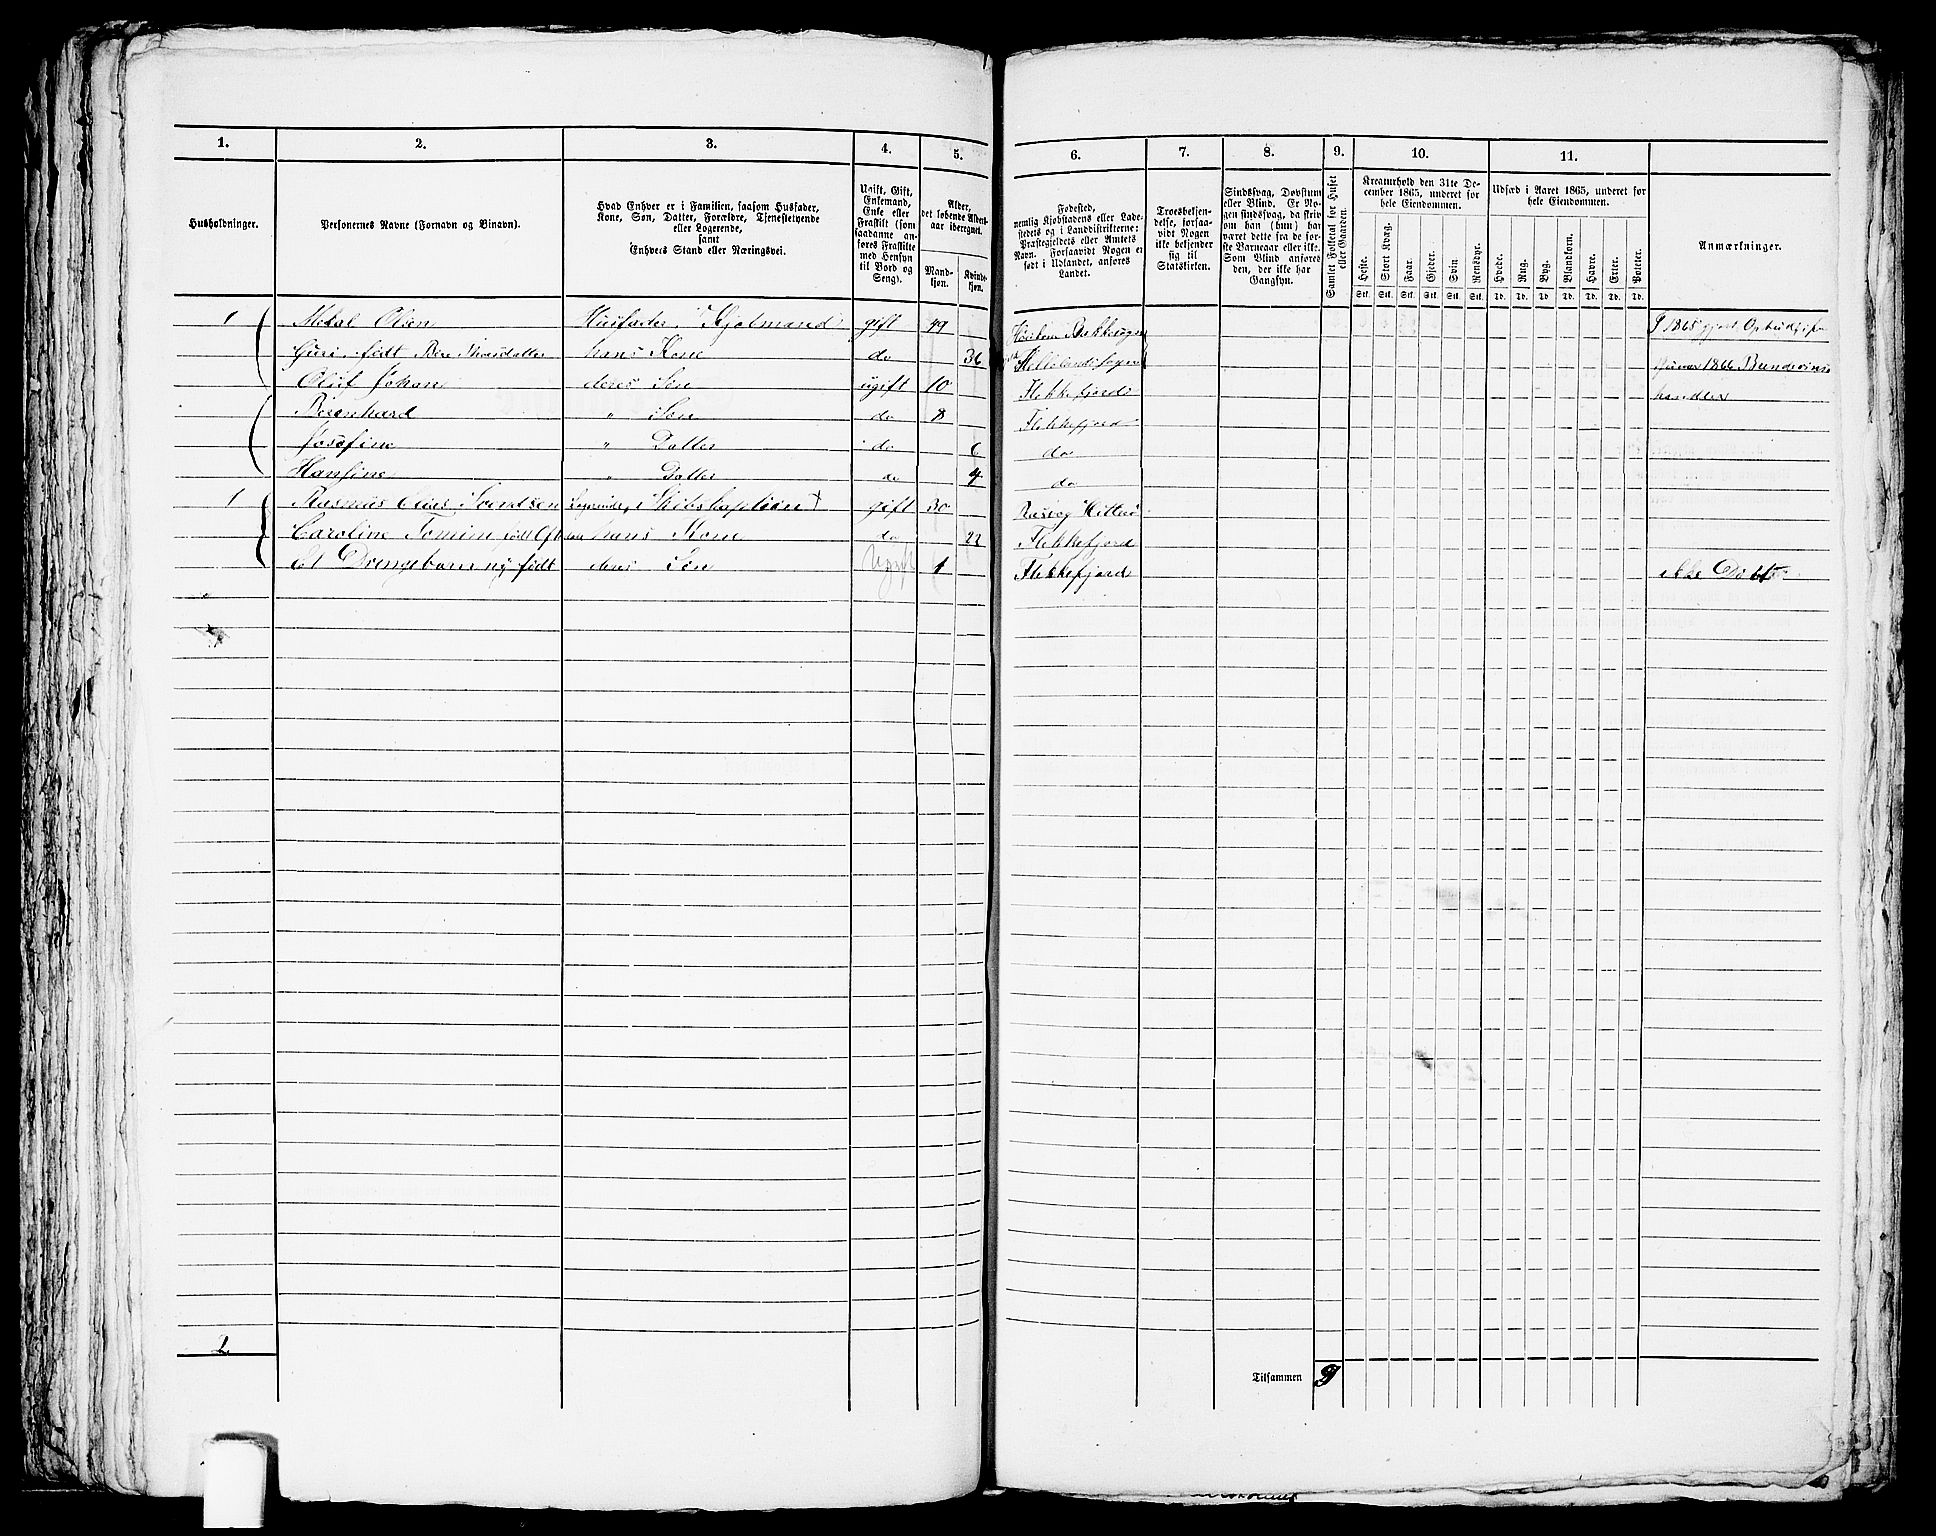 1. 2. 3. 4. 5. 6. 7. 8. 9. 10. 11.
Husholdninger.
Personernes Navne (Fornavn og Binavn).
Hvad Enhver er i Familien, saasom Husfader,
Kone, Søn, Datter, Forældre, Tjenestetyende
eller Logerende,
samt
Enhvers Stand eller Næringsvei.
Ugift, Gift,
Enkemand,
Enke eller
Fraskilt (som
saadanne an-
føres Fraskilte
med Hensyn
til Bord og
Seng).
Alder,
det løbende Alders-
aar iberegnet.
Mand-
kjøn.
Kvinde-
kjøn.
Fødested,
nemlig Kjøbstadens eller Lade-
stedets og i Landdistrikterne:
Præstegjeldets eller Amtets
Navn. Forsaavidt Nogen er
født i Udlandet, anføres
Landet.
Troesbekjen-
delse, forsaa-
vidt Nogen
ikke bekjender
sig til
Statskirken.
Sindssvag, Døvstum
eller Blind. Er No-
gen sindssvag, da skriv
om han (hun) har
været dette fra de før-
ste Barneaar eller ikke.
Som Blind anføres
den, der ikke har
Gangsyn.
Samlet Folketal for Huset
eller Gaarden.
Kreaturhold den 31te De-
cember 1865, underet for
hele Eiendommen.
Heste. Stort Kvæg. Faar. Gjeder. Svin Rensdyr.
Stk. Stk. Stk. Stk. Stk. Stk.
Udsæd i Aaret 1865, underet for
hele Eiendommen.
Hvede. Rug. Byg. Blandkorn. Havre. Erter. Poteter.
Td. Td. Td. Td. Td. Td. Td.
Anmærkninger.
1 Mekal Olsen Husfader, gift 49
Guri født hans Kone do 36 Hellelands Sogn
Oluf Johan deres Søn ugift 10 Flekkefjord
Berenhard " Søn do 8 Flekkefjord
Josefine " Datter do 6 do
Hansine " Datter do 4 do
1 Rasmus Svendsen Logerende, Skibskaptein gift 30 Rasvog Hitterø
Caroline født hans Kone do 22 Flekkefjord
Et Drengebarn ny født deres Søn Ugift 1 Flekkefjord ikke Døbt
2
Tilsammen 9